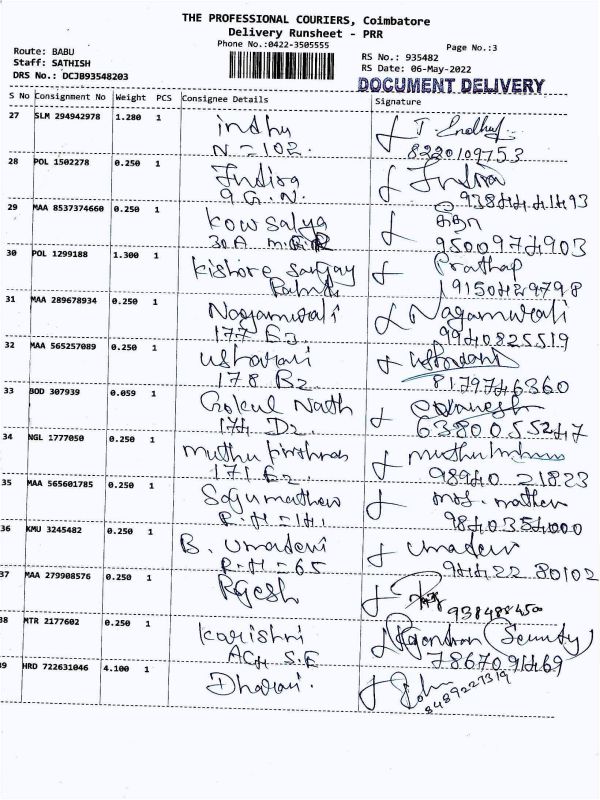 THE PROFESSIONAL COURIERS, Coimbatore
Delivery Runsheet - PRR
Phone No.:0422-3505555
Page No.:3
Route: BABU
Staff: SATHISH
DRS No.: DCJB93548203
RS No.: 935482
RS Date: 06-May-2022
DOCUMENT DELIVERY
S No Consignment No Weight PCS Consignee Details Signature
27 SLM 294942978 1.280 1 indhu
N=102. 8220109753
28 POL 1502278 0.250 1 Indira Indira
9.G.N.
29 MAA 8537374660 0.250 1 kowsalya
30A 9500974903
30 POL 1299188 1.300 1 kishore sanjay Prathap
9150429798
31 MAA 289678934 0.250 1 Nagamurali Nagamurali
177 E2 9940825519
32 MAA 565257089 0.250 1 usharani
178 B2 8179746360
33 BOD 307939 0.059 1 Gokul Nath
174 D2. 6380055247
34 NGL 1777050 0.250 1 muthu
171 E2. 98940 21823
35 MAA 565601785 0.250 1
9840354000
36 KMU 3245482 0.250 1 B. Umadevi Umadevi
R.H=65 94422 80102
37 MAA 279908576 0.250 1 Rgesh
38 MTR 2177602 0.250 1 karishni (Security)
S.E 7867091469
39 HRD 722631046 4.100 1 Dharani. John
8489227319